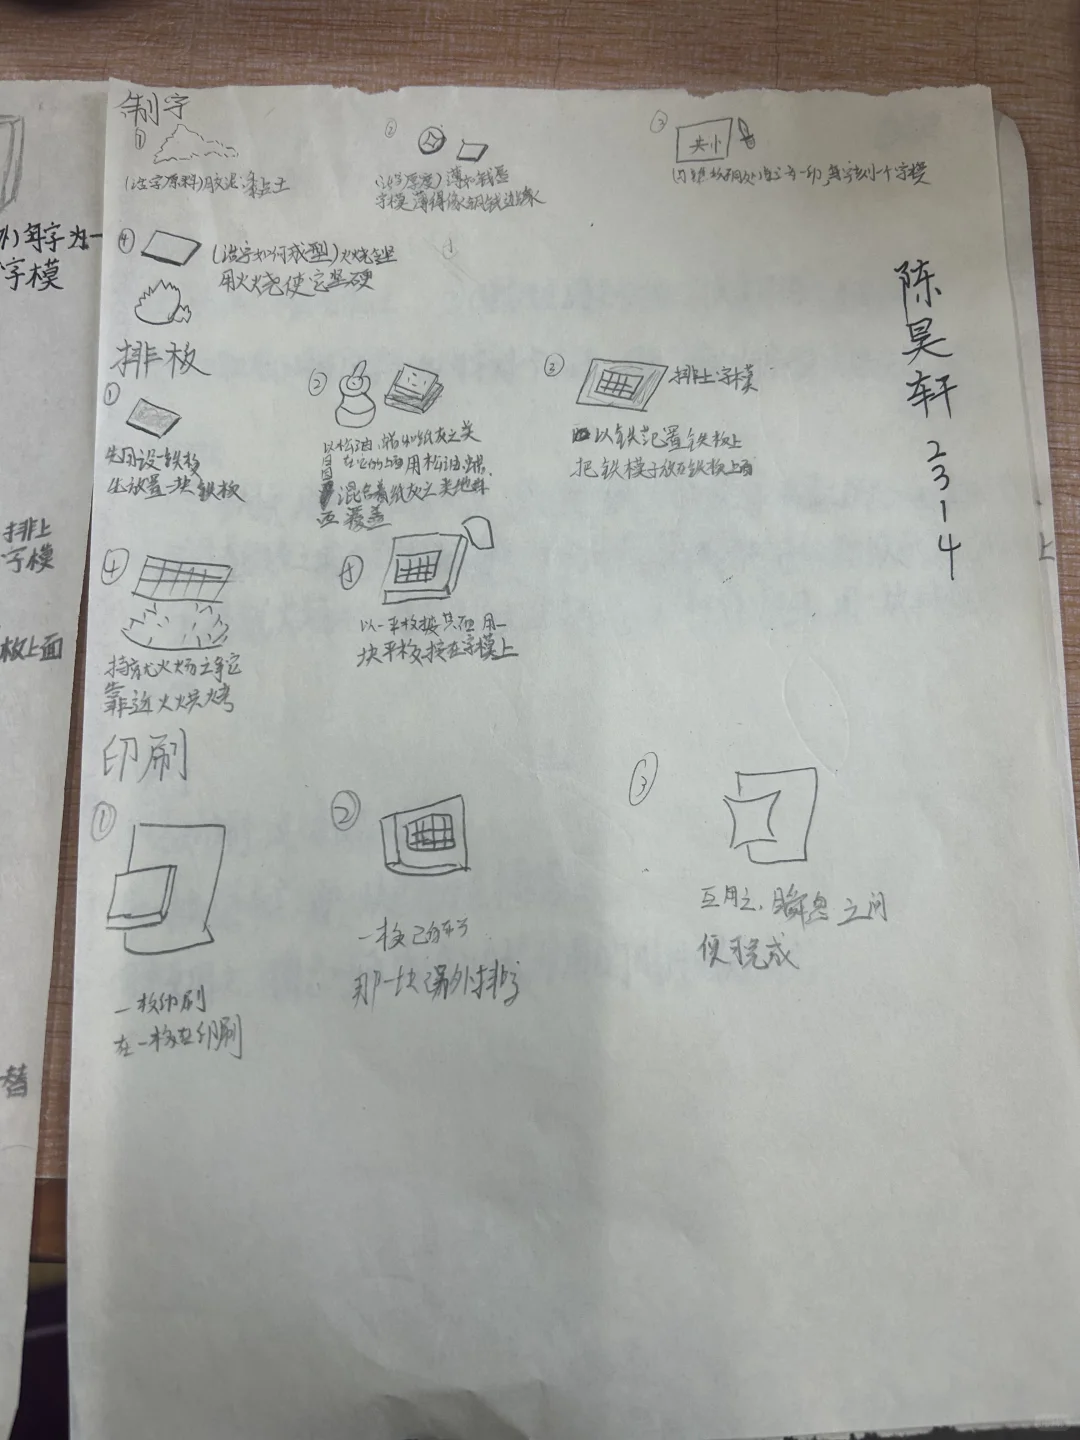 制字
①
(活字原料)胶泥:黏土
②
(活字厚度)薄如钱唇
字模薄得像铜钱边缘
③
每字一印,每字刻一个字模
④
(活字如何成型)火烧令坚
用火烧使它坚硬
排板
①
先设一铁板
先放置一块铁板
②
以松油、蜡和纸灰之类
在它的上面用松油、蜡
混合着纸灰之类地
覆盖
③
排上字模
以铁范置铁板上
把铁模子放在铁板上面
④
持就火炀之
靠近火烘烤
⑤
以一平板按其面 用一
块平板按在字模上
印刷
①
一板印刷
在一板在印刷
②
一板已自布字
那一块另外排字
③
互用之,瞬息之间
便可完成
陈
昊
轩
2
3
1
4
每字为一
字模
排上
字模
板上面
替
上